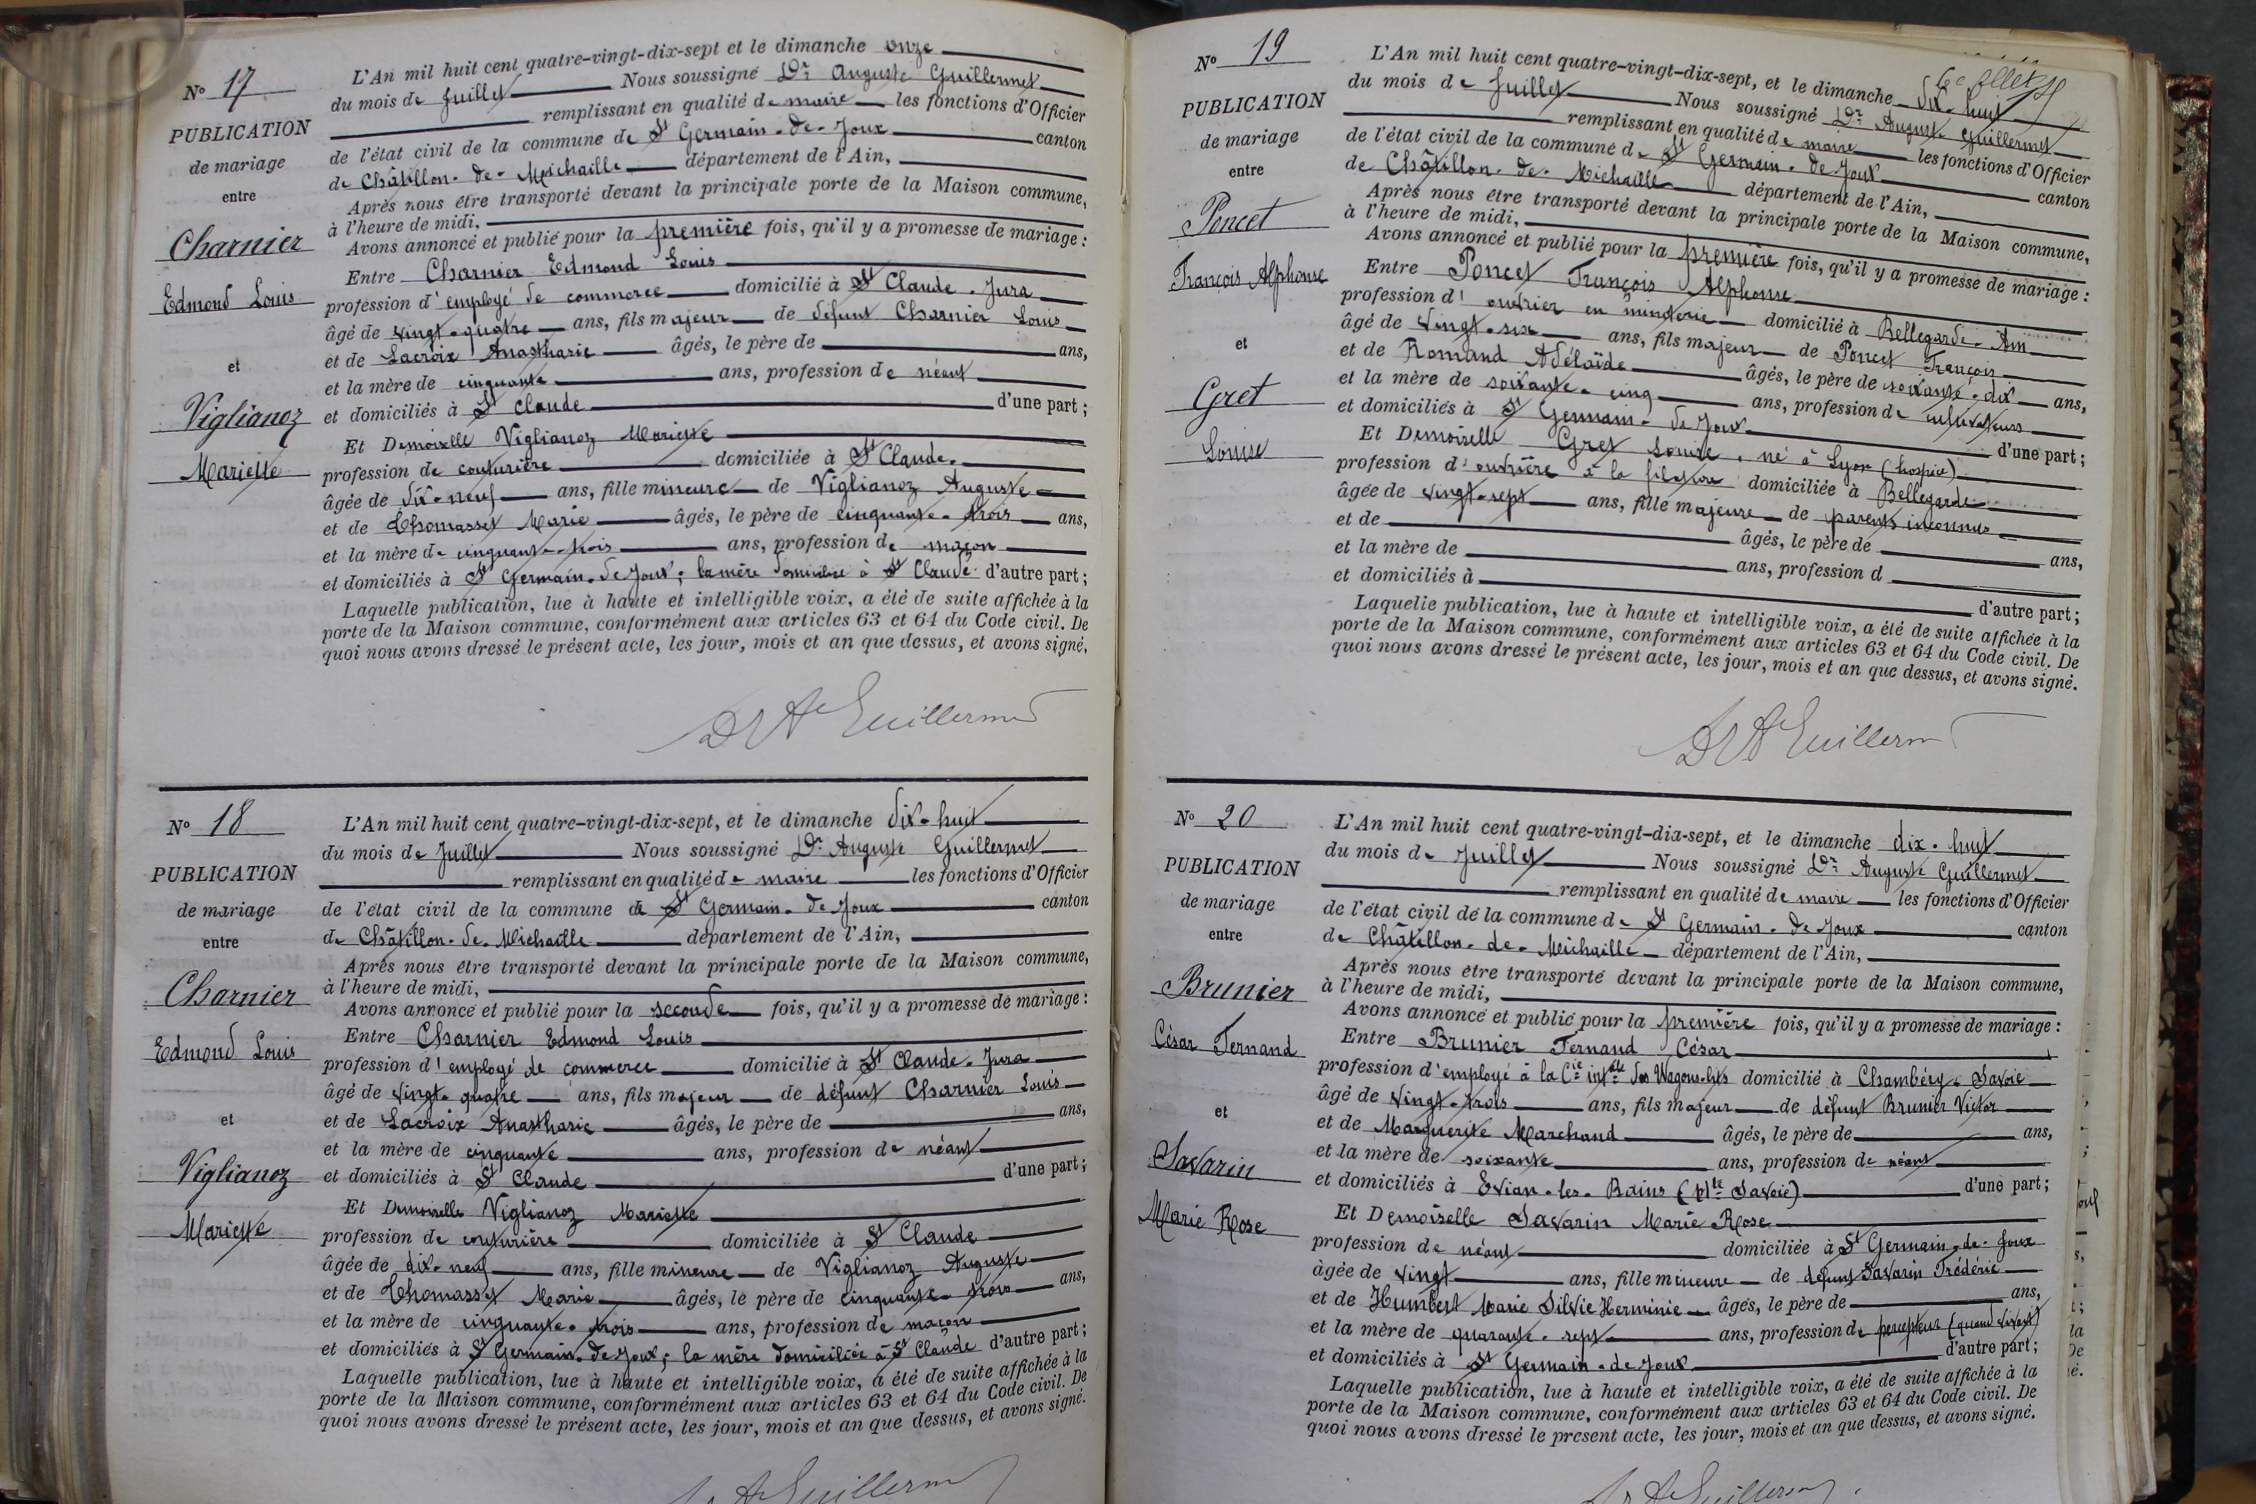 N° 17
PUBLICATION
de mariage
entre
Charnier
Edmond Louis
et
Viglianoz
Mariette
L'An mil huit cent quatre-vingt-dix-sept et le dimanche onze
du mois de Juillet Nous soussigné Dr Auguste Guillermet
remplissant en qualité de maire les fonctions d'Officier
de l'état civil de la commune de St Germain-de-Joux canton
de Châtillon-de-Michaille département de l'Ain,
Après nous être transporté devant la principale porte de la Maison commune,
à l'heure de midi,
Avons annoncé et publié pour la première fois, qu'il y a promesse de mariage :
Entre Charnier Edmond Louis
profession d'employé de commerce domicilié à St Claude. Jura
âgé de vingt-quatre ans, fils majeur de défunt Charnier Louis
et de Lacroix Anastharie âgés, le père de ans,
et la mère de cinquante ans, profession de néant
et domiciliés à St Claude d'une part ;
Et Demoiselle Viglianoz Mariette
profession de couturière domiciliée à St Claude.
âgée de dix-neuf ans, fille mineure de Viglianoz Auguste
et de Thomasset Marie âgés, le père de cinquante-trois ans,
et la mère de cinquante-trois ans, profession de maçon
et domiciliés à St Germain-de-Joux ; la mère domiciliée à St Claude d'autre part ;
Laquelle publication, lue à haute et intelligible voix, a été de suite affichée à la
porte de la Maison commune, conformément aux articles 63 et 64 du Code civil. De
quoi nous avons dressé le présent acte, les jour, mois et an que dessus, et avons signé,
Dr Ate Guillermet
N° 18
PUBLICATION
de mariage
entre
Charnier
Edmond Louis
et
Viglianoz
Mariette
L'An mil huit cent quatre-vingt-dix-sept, et le dimanche dix-huit
du mois de Juillet Nous soussigné Dr Auguste Guillermet
remplissant en qualité de maire les fonctions d'Officier
de l'état civil de la commune de St Germain-de-Joux canton
de Châtillon-de-Michaille département de l'Ain,
Après nous être transporté devant la principale porte de la Maison commune,
à l'heure de midi,
Avons annoncé et publié pour la seconde fois, qu'il y a promesse de mariage :
Entre Charnier Edmond Louis
profession d'employé de commerce domicilié à St Claude. Jura
âgé de vingt-quatre ans, fils majeur de défunt Charnier Louis
et de Lacroix Anastharie âgés, le père de ans,
et la mère de cinquante ans, profession de néant
et domiciliés à St Claude d'une part ;
Et Demoiselle Viglianoz Mariette
profession de couturière domiciliée à St Claude
âgée de dix-neuf ans, fille mineure de Viglianoz Auguste
et de Thomasset Marie âgés, le père de cinquante-trois ans,
et la mère de cinquante-trois ans, profession de maçon
et domiciliés à St Germain-de-Joux ; la mère domiciliée à St Claude d'autre part ;
Laquelle publication, lue à haute et intelligible voix, a été de suite affichée à la
porte de la Maison commune, conformément aux articles 63 et 64 du Code civil. De
quoi nous avons dressé le présent acte, les jour, mois et an que dessus, et avons signé.
Dr Ate Guillermet
N° 19
PUBLICATION
de mariage
entre
Poncet
François Alphonse
et
Gret
Louise
L'An mil huit cent quatre-vingt-dix-sept, et le dimanche dix-huit
du mois de Juillet Nous soussigné Dr Auguste Guillermet
remplissant en qualité de maire les fonctions d'Officier
de l'état civil de la commune de St Germain-de-Joux canton
de Châtillon-de-Michaille département de l'Ain,
Après nous être transporté devant la principale porte de la Maison commune,
à l'heure de midi,
Avons annoncé et publié pour la première fois, qu'il y a promesse de mariage :
Entre Poncet François Alphonse
profession d'ouvrier en minoterie domicilié à Bellegarde-Ain
âgé de vingt-six ans, fils majeur de Poncet François
et de Romand Adélaïde âgés, le père de soixante-dix ans,
et la mère de soixante-cinq ans, profession de cultivateurs
et domiciliés à St Germain-de-Joux d'une part ;
Et Demoiselle Gret Louise, né à Lyon (hospice)
profession d'ouvrière à la filature domiciliée à Bellegarde
âgée de vingt-sept ans, fille majeure de parents inconnus
et de âgés, le père de ans,
et la mère de ans, profession d
et domiciliés à d'autre part ;
Laquelle publication, lue à haute et intelligible voix, a été de suite affichée à la
porte de la Maison commune, conformément aux articles 63 et 64 du Code civil. De
quoi nous avons dressé le présent acte, les jour, mois et an que dessus, et avons signé.
Dr Ate Guillermet
N° 20
PUBLICATION
de mariage
entre
Brunier
César Fernand
et
Savarin
Marie Rose
L'An mil huit cent quatre-vingt-dix-sept, et le dimanche dix-huit
du mois de Juillet Nous soussigné Dr Auguste Guillermet
remplissant en qualité de maire les fonctions d'Officier
de l'état civil de la commune de St Germain-de-Joux canton
de Châtillon-de-Michaille département de l'Ain,
Après nous être transporté devant la principale porte de la Maison commune,
à l'heure de midi,
Avons annoncé et publié pour la première fois, qu'il y a promesse de mariage :
Entre Brunier Fernand César
profession d'employé à la Cie intle des Wagons-lits domicilié à Chambéry. Savoie
âgé de vingt-trois ans, fils majeur de défunt Brunier Victor
et de Marguerite Marchand âgés, le père de ans,
et la mère de soixante ans, profession de néant
et domiciliés à Evian-les-Bains (Hte Savoie) d'une part ;
Et Demoiselle Savarin Marie Rose
profession de néant domiciliée à St Germain-de-Joux
âgée de vingt ans, fille mineure de défunt Savarin Frédéric
et de Humbert Marie Silvie Herminie âgés, le père de ans,
et la mère de quarante-sept ans, profession de percepteur (quand vivait)
et domiciliés à St Germain-de-Joux d'autre part ;
Laquelle publication, lue à haute et intelligible voix, a été de suite affichée à la
porte de la Maison commune, conformément aux articles 63 et 64 du Code civil. De
quoi nous avons dressé le présent acte, les jour, mois et an que dessus, et avons signé.
Dr Ate Guillermet